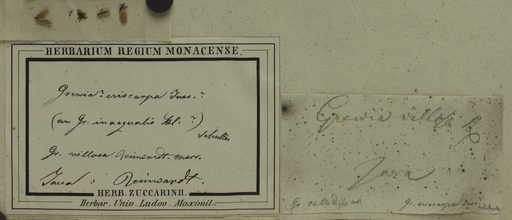 HERBARIUM REGIUM MONACENSE.
Grewia? eriocarpa Juss.?
(an Gr. inaequalis Bl.?)
Schultes
Gr. villosa Reinwardt. mss.
Java: Reinwardt.
HERB. ZUCCARINII.
Herbar. Univ. Ludov. Maximil.
Grewia villosa
Java
Gr.
Gr. eriocarpa Juss.
Schultes